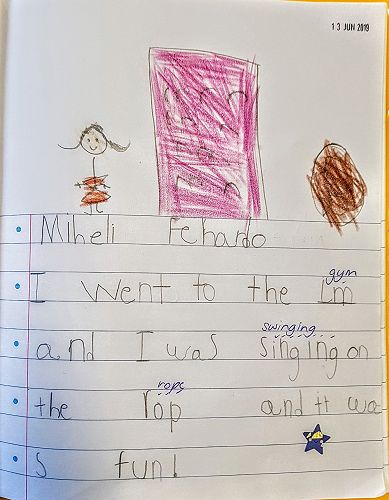 13 JUN 2019
Miheli Fehardo
gym
I went to the im
swinging
and I was singing on
rops
the rop and it wa
s fun!